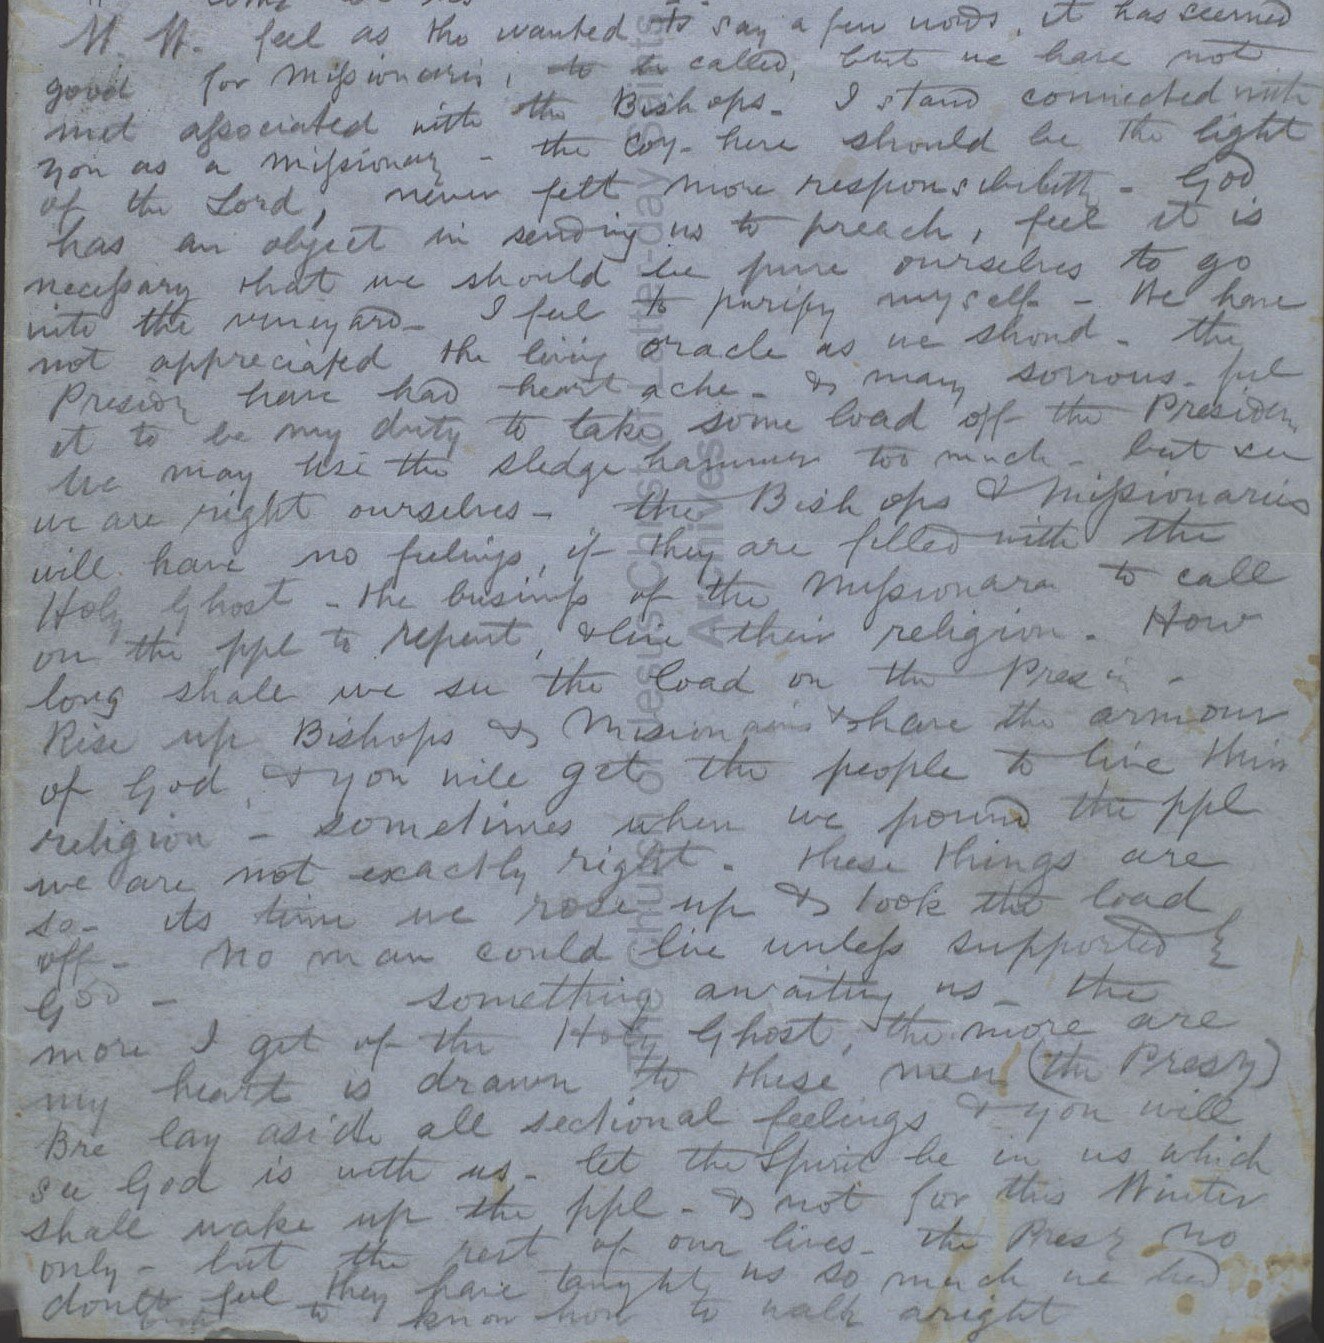 feel as tho wanted to say a few words, it has seemed
good for missionaris, to be called, but we have not
met associated with the Bishops - I stand connected with
you as a missionary - the Coy - here should be the light
of the Lord, never felt more responsibility - God
has an object in sending us to preach, feel it is
necessary that we should be pure ourselves to go
into the vineyard - I feel to purify myself - We have
not appreciated the living oracle as we should - the
Presidy have had heart ache - & many sorrows - feel
it to be my duty to take some load off the Presiden
We may use the sledge hammer too much - but see
we are right ourselves - the Bishops & Missionaries
will have no feelings, if they are filled with the
Holy Ghost - the business of the Missionara to call
on the ppl to repent, & live their religion - How
long shall we see the load on the Pres
Rise up Bishops & & have the armour
of God, & you will get the people to live their
religion - sometimes when we pound the ppl
we are not exactly right - these things are
so - its time we rose up & took the load
off - No man could live unless supported by
God - something awaiting us - the
more I get of the Holy Ghost, the more are
my heart is drawn to these men (the Presy)
Bre lay aside all sectional feelings & you will
see God is with us - let the Spirit be in us which
shall wake up the ppl - & not for this Winter
only - but the rest of our lives - the Presy no
doubt feel they have taught us so much we
to know how to walk aright
The Church of Jesus Christ of Latter-day Saints
Archives